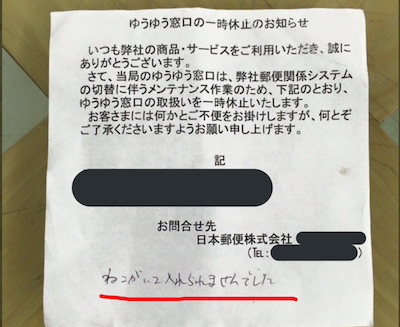 ゆうゆう窓口の一時休止のお知らせ
いつも弊社の商品・サービスをご利用いただき、誠に
ありがとうございます。
さて、当局のゆうゆう窓口は、弊社郵便関係システム
の切替に伴うメンテナンス作業のため、下記のとおり、
ゆうゆう窓口の取扱いを一時休止いたします。
お客さまには何かとご不便をお掛けしますが、何とぞ
ご了承くださいますようお願い申し上げます。
記
お問合せ先
日本郵便株式会社
(TEL:
ねこがいて入れられませんでした